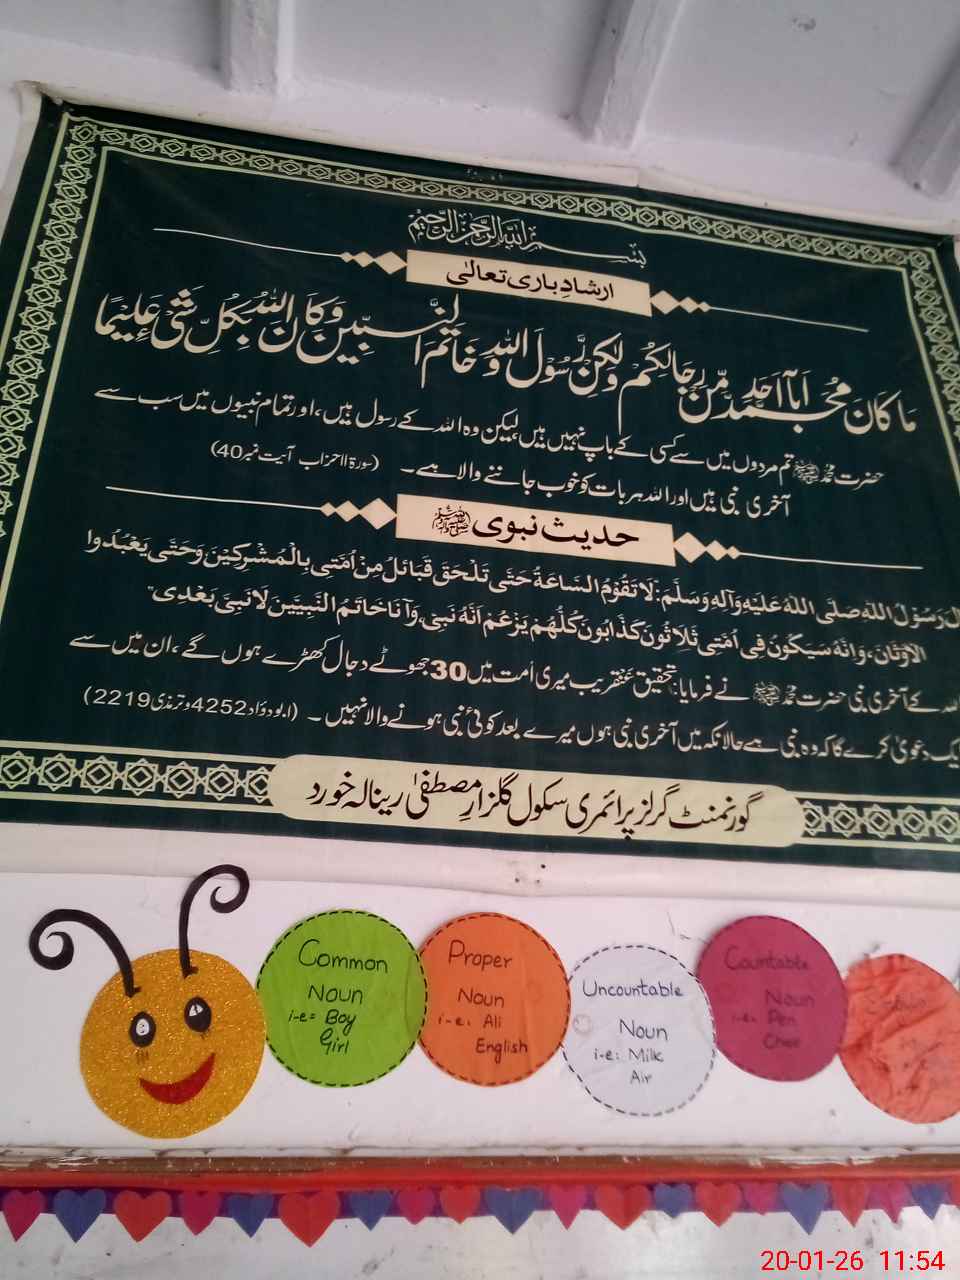 بسم الله الرحمن الرحيم
ارشادِ باری تعالیٰ
مَا كَانَ مُحَمَّدٌ اَبَآ اَحَدٍ مِّنْ رِّجَالِكُمْ وَلٰكِنْ رَّسُوْلَ اللهِ وَخَاتَمَ النَّبِيّٖنَ وَكَانَ اللهُ بِكُلِّ شَيْءٍ عَلِيْمًا
حضرت محمد ﷺ تم مردوں میں سے کسی کے باپ نہیں ہیں لیکن وہ اللہ کے رسول ہیں، اور تمام نبیوں میں سب سے
آخری نبی ہیں اور اللہ ہر بات کو خوب جاننے والا ہے۔ (سورۃ الاحزاب آیت نمبر 40)
حدیث نبوی ﷺ
رَسُوْلُ اللهِ صَلَّى اللهُ عَلَيْهِ وَآلِهٖ وَسَلَّمَ: لَا تَقُوْمُ السَّاعَةُ حَتّٰى تَلْحَقَ قَبَائِلُ مِنْ اُمَّتِى بِالْمُشْرِكِيْنَ وَحَتّٰى يَعْبُدُوا
الْاَوْثَانَ، وَاِنَّهٗ سَيَكُوْنُ فِى اُمَّتِى ثَلَاثُوْنَ كَذَّابُوْنَ كُلُّهُمْ يَزْعُمُ اَنَّهٗ نَبِىٌّ وَاَنَا خَاتَمُ النَّبِيِّيْنَ لَا نَبِىَّ بَعْدِى"
کے آخری نبی حضرت محمد ﷺ نے فرمایا: تحقیق عنقریب میری امت میں 30 جھوٹے دجال کھڑے ہوں گے، ان میں سے
دعویٰ کرے گا کہ وہ نبی ہے حالانکہ میں آخری نبی ہوں میرے بعد کوئی نبی ہونے والا نہیں۔ (ابوداؤد 4252 و ترمذی 2219)
گورنمنٹ گرلز پرائمری سکول گلزارِ مصطفیٰ رینالہ خورد
Common
Noun
i-e= Boy
Girl
Proper
Noun
i-e: Ali
English
Uncountable
Noun
i-e: Milk
Air
Countable
Noun
i-e: Pen
20-01-26 11:54